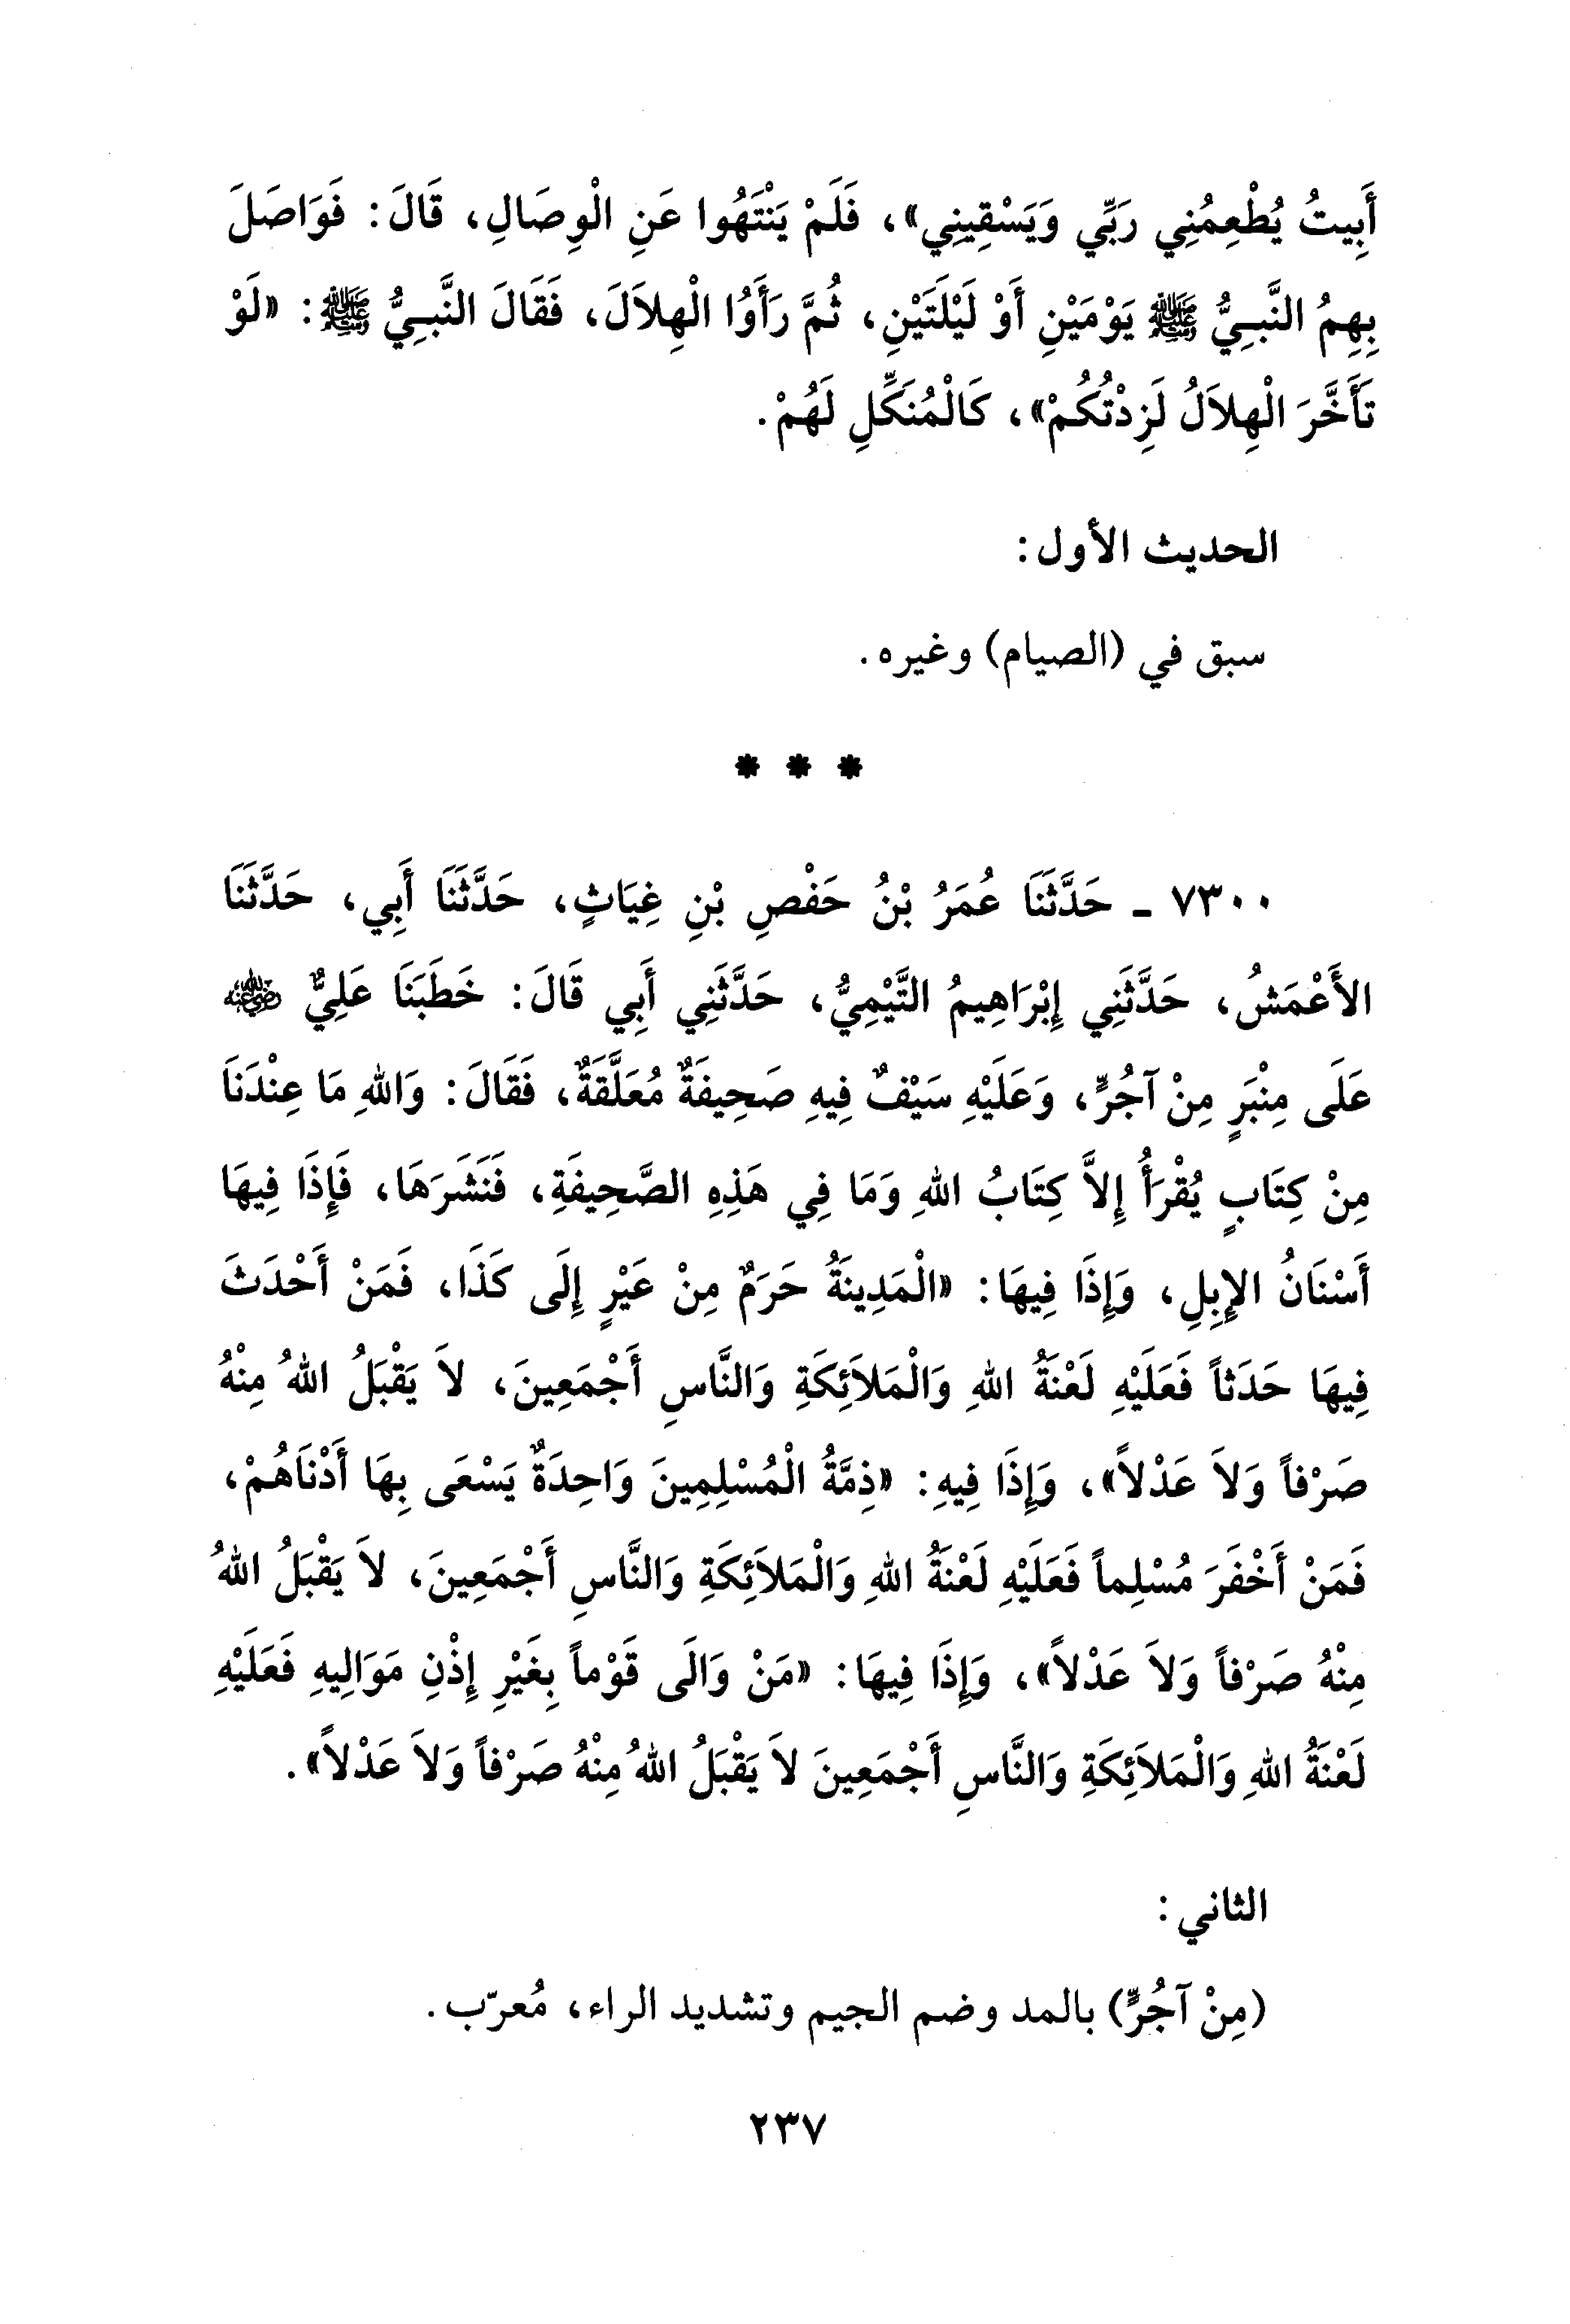 أَبِيتُ يُطْعِمُنِي رَبِّي وَيَسْقِينِي»، فَلَمْ يَنْتَهُوا عَنِ الْوِصَالِ، قَالَ: فَوَاصَلَ
بِهِمُ النَّبِيُّ ﷺ يَوْمَيْنِ أَوْ لَيْلَتَيْنِ، ثُمَّ رَأَوُا الْهِلاَلَ، فَقَالَ النَّبِيُّ ﷺ: «لَوْ
تَأَخَّرَ الْهِلاَلُ لَزِدْتُكُمْ»، كَالْمُنَكِّلِ لَهُمْ.
الحديث الأول:
سبق في (الصيام) وغيره.
* * *
٧٣٠٠ - حَدَّثَنَا عُمَرُ بْنُ حَفْصِ بْنِ غِيَاثٍ، حَدَّثَنَا أَبِي، حَدَّثَنَا
الأَعْمَشُ، حَدَّثَنِي إِبْرَاهِيمُ التَّيْمِيُّ، حَدَّثَنِي أَبِي قَالَ: خَطَبَنَا عَلِيٌّ رضي الله عنه
عَلَى مِنْبَرٍ مِنْ آجُرٍّ، وَعَلَيْهِ سَيْفٌ فِيهِ صَحِيفَةٌ مُعَلَّقَةٌ، فَقَالَ: وَاللهِ مَا عِنْدَنَا
مِنْ كِتَابٍ يُقْرَأُ إِلاَّ كِتَابُ اللهِ وَمَا فِي هَذِهِ الصَّحِيفَةِ، فَنَشَرَهَا، فَإِذَا فِيهَا
أَسْنَانُ الإِبِلِ، وَإِذَا فِيهَا: «الْمَدِينَةُ حَرَمٌ مِنْ عَيْرٍ إِلَى كَذَا، فَمَنْ أَحْدَثَ
فِيهَا حَدَثاً فَعَلَيْهِ لَعْنَةُ اللهِ وَالْمَلاَئِكَةِ وَالنَّاسِ أَجْمَعِينَ، لاَ يَقْبَلُ اللهُ مِنْهُ
صَرْفاً وَلاَ عَدْلاً»، وَإِذَا فِيهِ: «ذِمَّةُ الْمُسْلِمِينَ وَاحِدَةٌ يَسْعَى بِهَا أَدْنَاهُمْ،
فَمَنْ أَخْفَرَ مُسْلِماً فَعَلَيْهِ لَعْنَةُ اللهِ وَالْمَلاَئِكَةِ وَالنَّاسِ أَجْمَعِينَ، لاَ يَقْبَلُ اللهُ
مِنْهُ صَرْفاً وَلاَ عَدْلاً»، وَإِذَا فِيهَا: «مَنْ وَالَى قَوْماً بِغَيْرِ إِذْنِ مَوَالِيهِ فَعَلَيْهِ
لَعْنَةُ اللهِ وَالْمَلاَئِكَةِ وَالنَّاسِ أَجْمَعِينَ لاَ يَقْبَلُ اللهُ مِنْهُ صَرْفاً وَلاَ عَدْلاً».
الثاني:
(مِنْ آجُرٍّ) بالمد وضم الجيم وتشديد الراء، مُعرّب.
٢٣٧